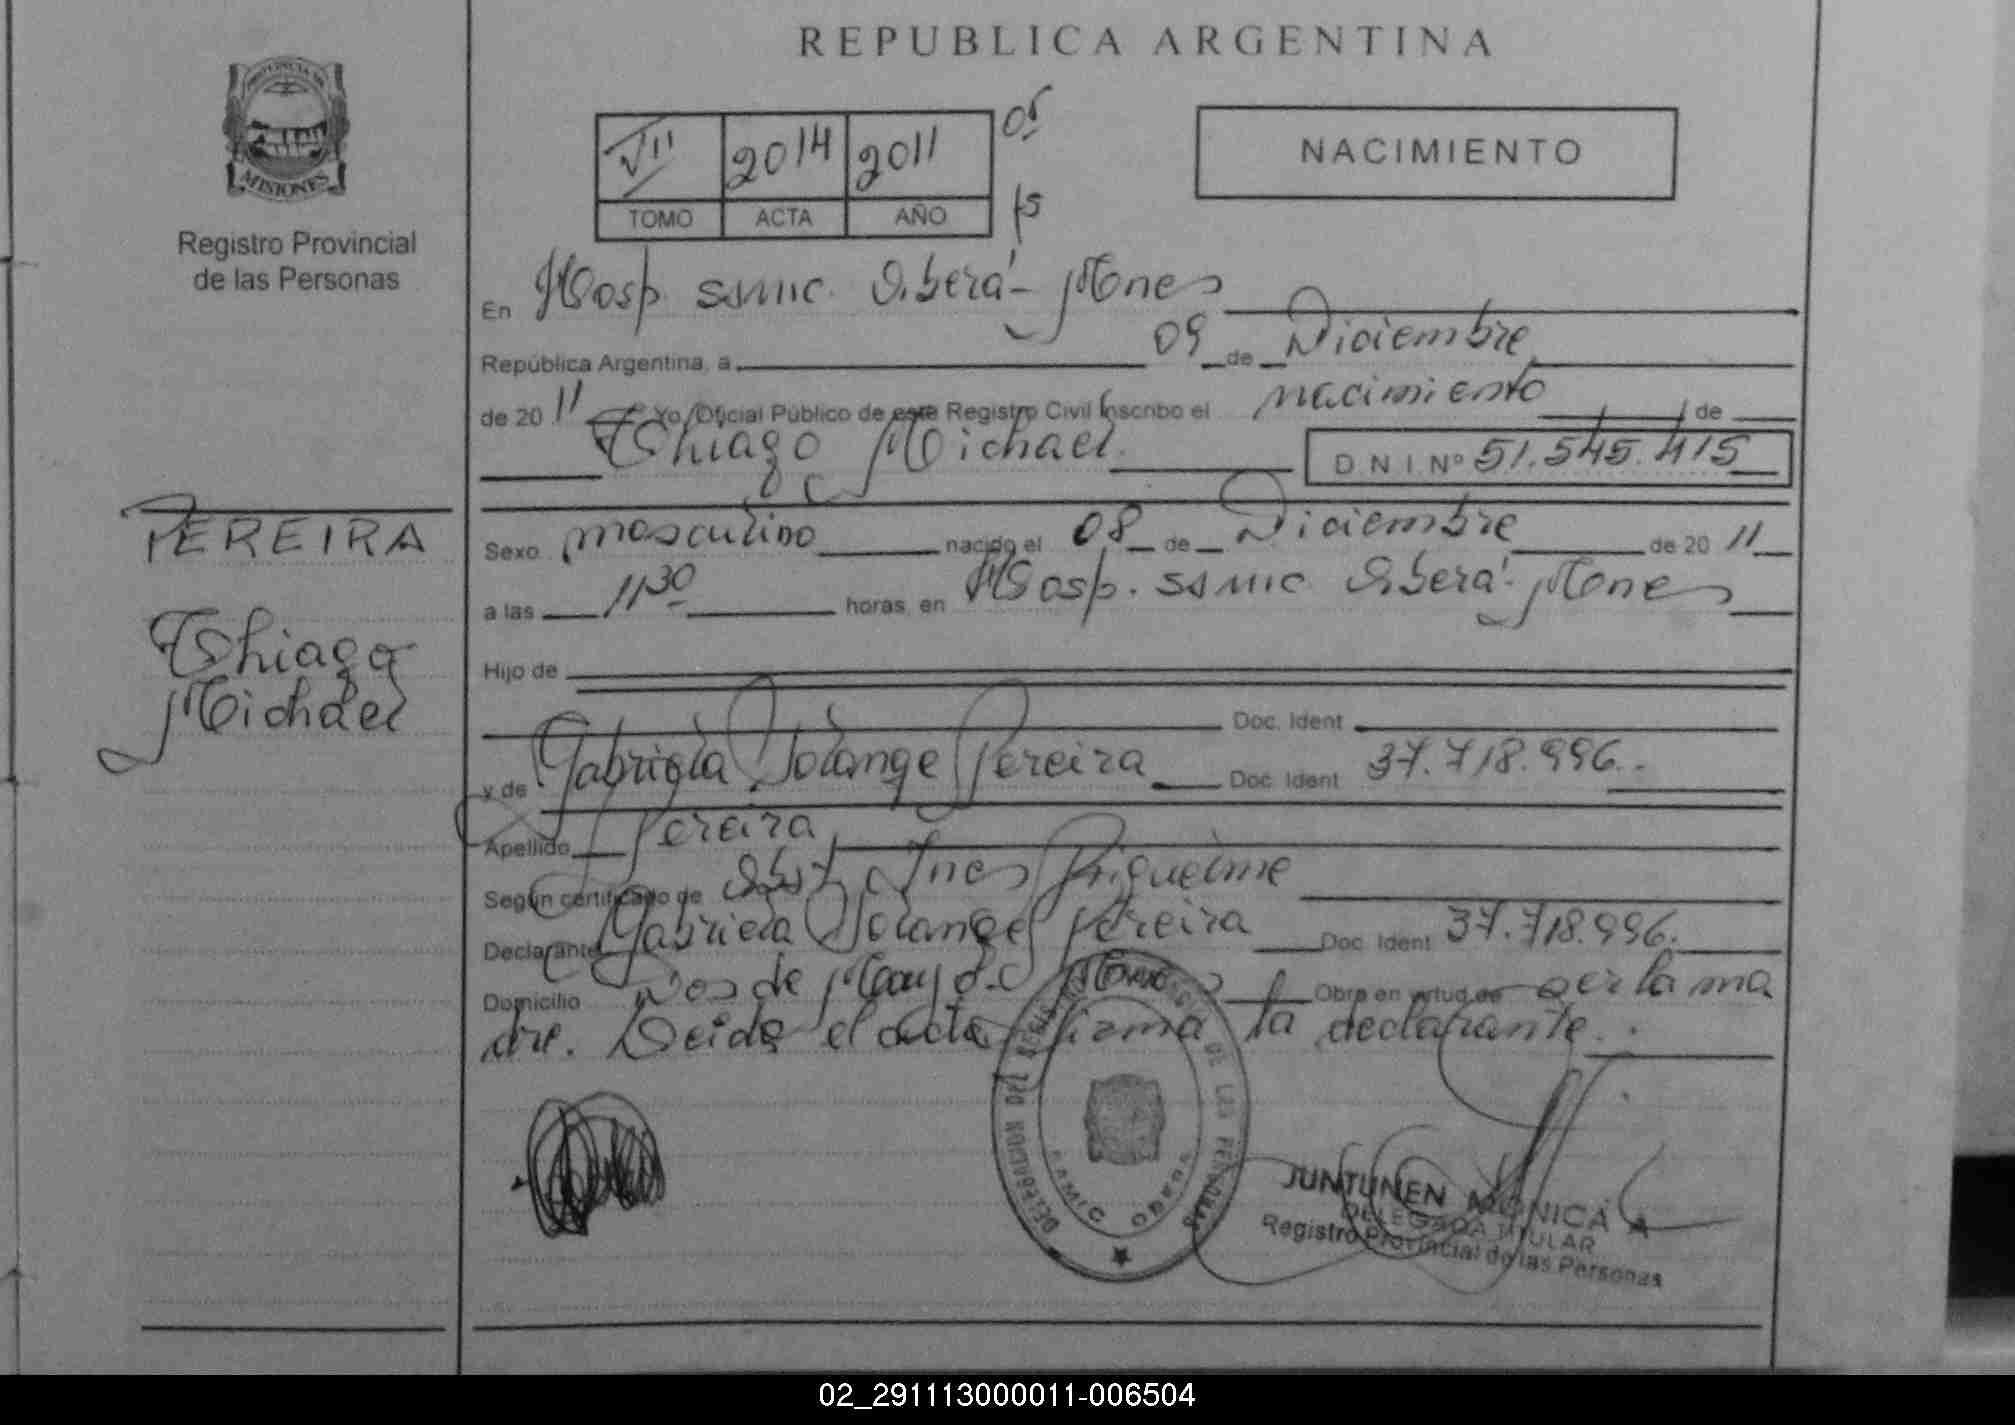 REPUBLICA ARGENTINA
PROVINCIA DE
MISIONES
Registro Provincial
de las Personas
VII 2014 2011 05
TOMO ACTA AÑO 15
NACIMIENTO
En Hosp. samic. Oberá - Mones
República Argentina, a 09 de Diciembre
de 20 11 Yo, Oficial Público de este Registro Civil Inscribo el nacimiento de
Thiago Michael. D N I. Nº 51.545.415
PEREIRA
Thiago
Michael
Sexo masculino nacido el 08 de Diciembre de 20 11
a las 11 30 horas en Hosp. samic Oberá - Mones
Hijo de
Doc. Ident
y de Gabriela Solange Pereira Doc. Ident 37.718.996.
Apellido Pereira
Según certificado de Obst. Ines Riquelme
Declarante Gabriela Solange Pereira Doc. Ident 37.718.996.
Domicilio Dos de Mayo - Mones Obra en virtud de ser la ma
dre. Leida el acta firma la declarante.
DELEGACION DEL REGISTRO PROVINCIAL DE LAS PERSONAS
SAMIC OBERA
JUNTUNEN MONICA A
DELEGADA TITULAR
Registro Provincial de las Personas
02_291113000011-006504